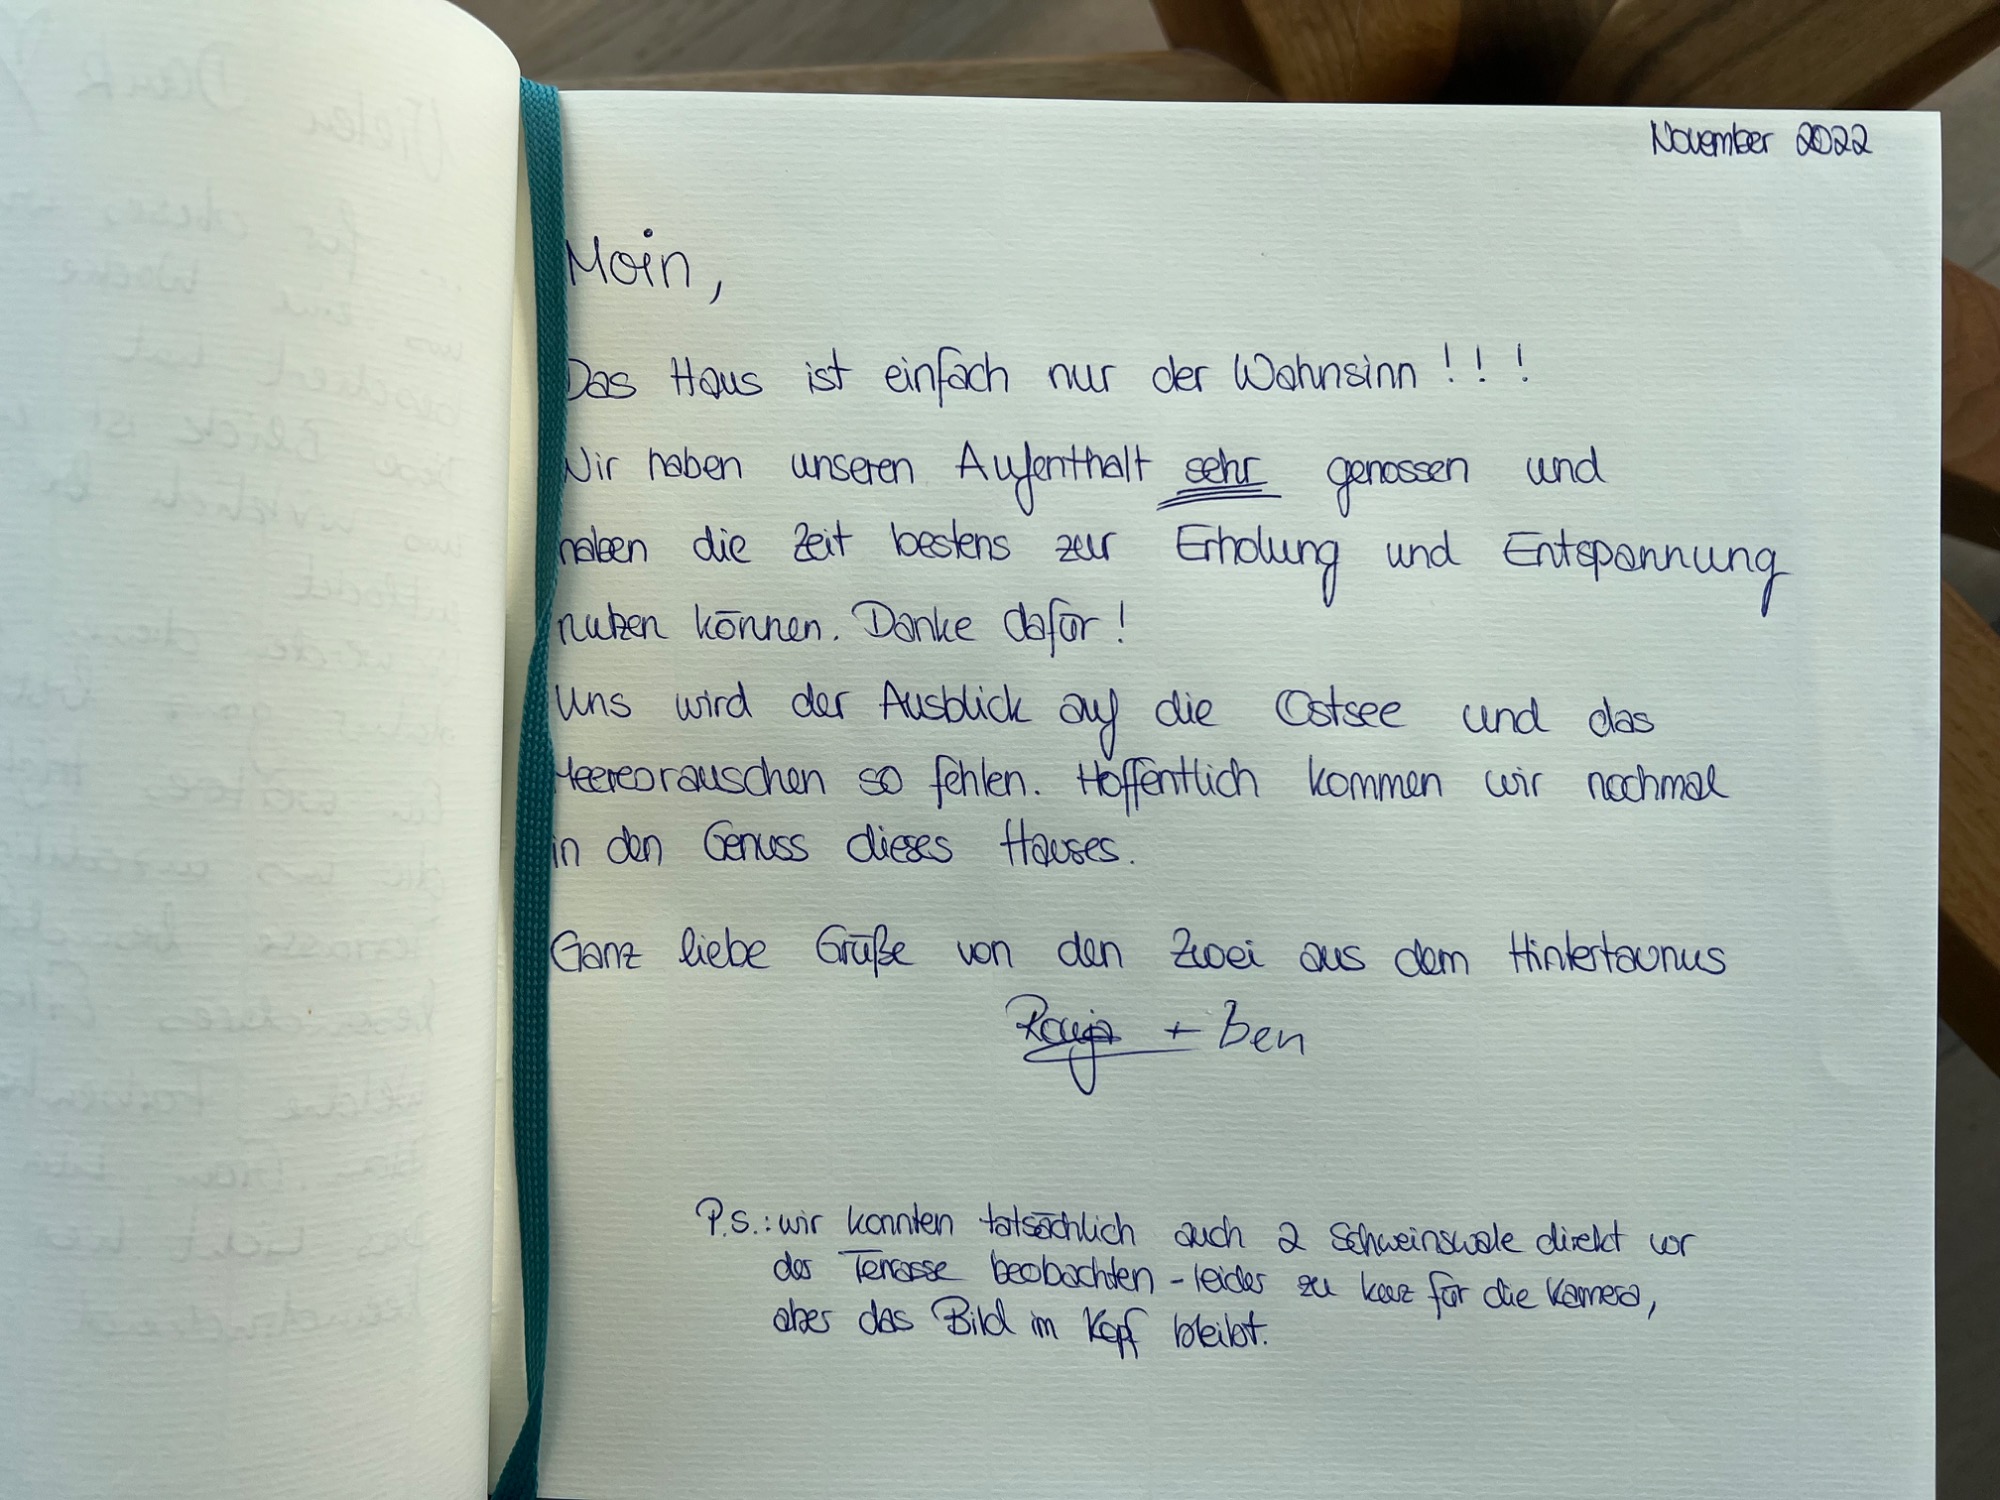 November 2022
Moin,
Das Haus ist einfach nur der Wahnsinn!!!
Wir haben unseren Aufenthalt sehr genossen und
haben die Zeit bestens zur Erholung und Entspannung
nutzen können. Danke dafür!
Uns wird der Ausblick auf die Ostsee und das
Meeresrauschen so fehlen. Hoffentlich kommen wir nochmal
in den Genuss dieses Hauses.
Ganz liebe Grüße von den Zwei aus dem Hintertaunus
+ Ben
P.S.: wir konnten tatsächlich auch 2 Schweinswale direkt vor
der Terrasse beobachten - leider zu kurz für die Kamera,
aber das Bild im Kopf bleibt.